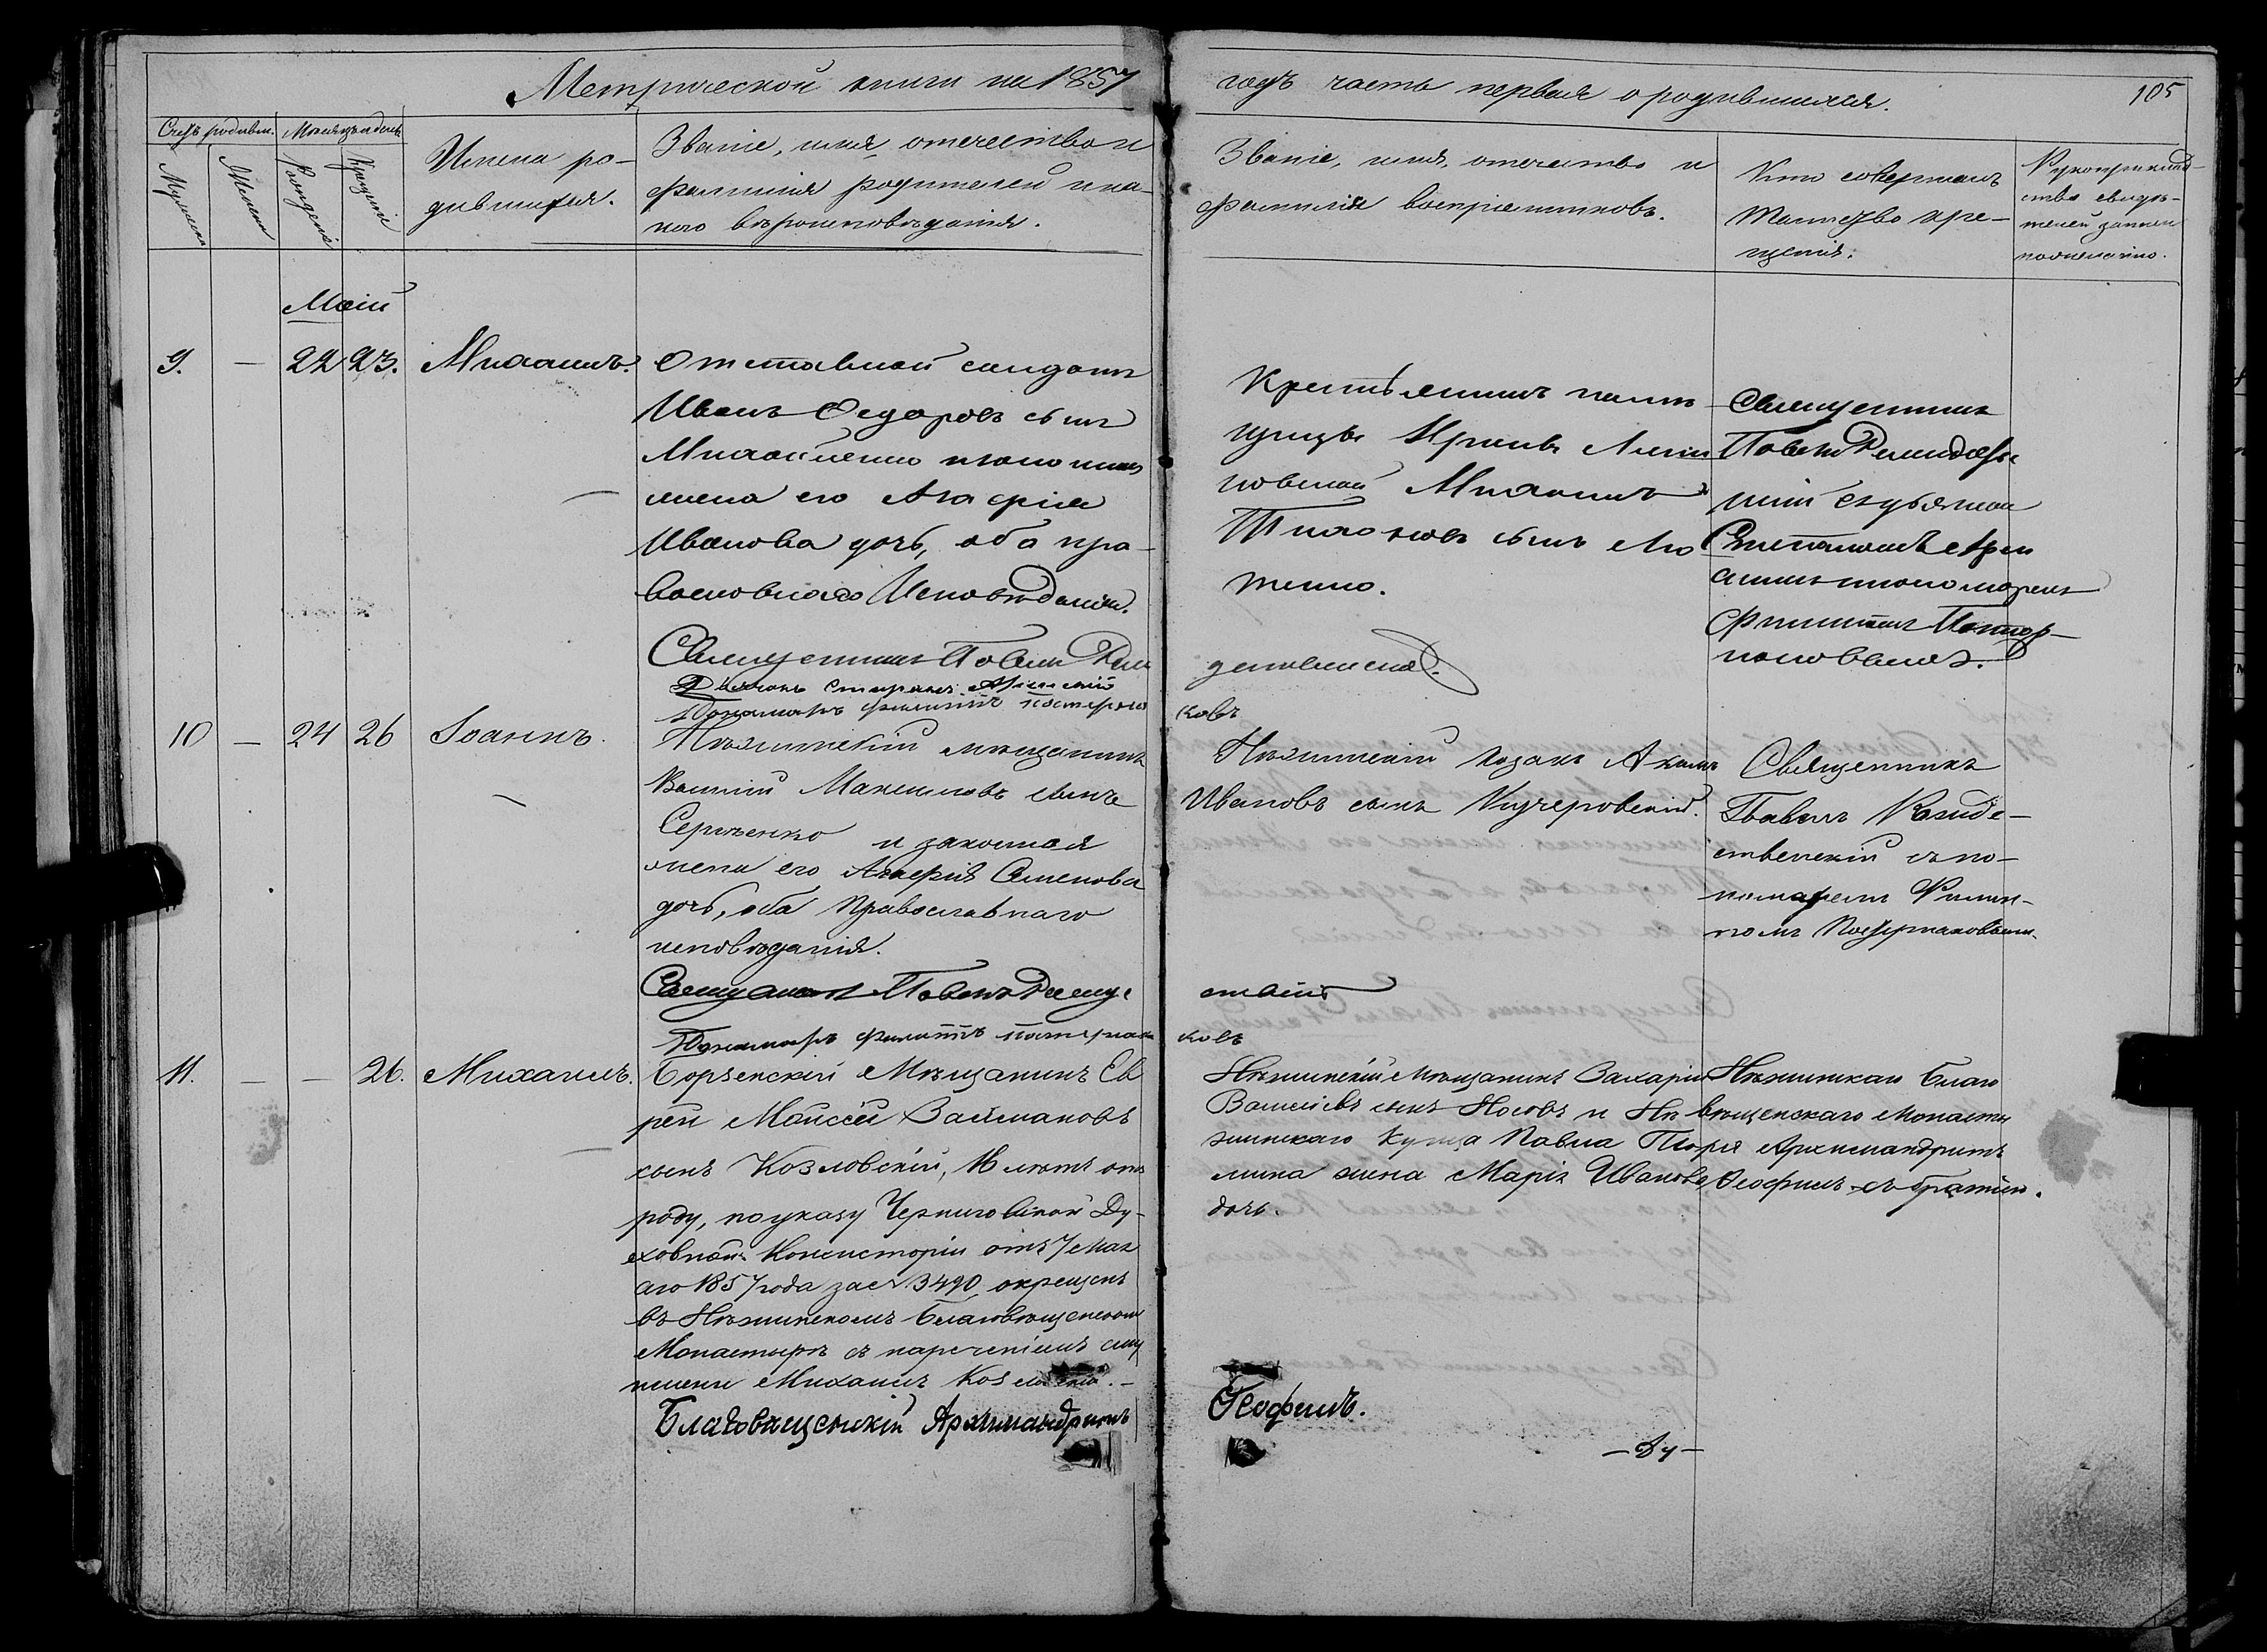 Метрической книги на 1857
годъ часть первая о родившихся.
105
Счетъ родивш.
Мужеска
Женска
Месяцъ и день
Рожденія
Крещенія
Имена ро-
дившихся.
Званіе, имя, отечество и
фамилія родителей и ка-
кого вѣроисповѣданія.
Званіе, имя, отечество и
фамилія воспріемниковъ.
Кто совершалъ
таинство кре-
щенія.
Рукоприклад-
ство свидѣ-
телей записи
по желанію.
Май
9. — 22 23. Михаилъ.
Отставной солдатъ
Иванъ Федоровъ сынъ
Михайленко
жена его Агафія
Иванова дочь, оба пра-
вославнаго Исповѣданія.
Крестьянинъ
Михаилъ
сынъ
тенко.
Священникъ
Павелъ
Стефаномъ
пономаремъ
Филиппомъ
Священникъ Павелъ
Діаконъ Стефанъ
Пономарь Филиппъ Постерна
ковъ
10 — 24 26 Іоаннъ.
Нѣжинскій мѣщанинъ
Василій Максимовъ сынъ
Сергѣенко и законная
жена его Агафія Семенова
дочь, оба Православнаго
исповѣданія.
Нѣжинскій козакъ Акимъ
Ивановъ сынъ Кучеровскій.
Священникъ
Павелъ Рожде-
ственскій съ по-
номаремъ Филип-
помъ Постернаковымъ.
Священникъ Павелъ Рожде
ственскій
Пономарь Филиппъ Постерна
ковъ
11. — — 26. Михаилъ.
Борзенскій Мѣщанинъ Ев
рей Мойсей Займановъ
сынъ Козловскій, 18 лѣтъ отъ
роду, по указу Черниговской Ду-
ховной Консисторіи отъ 7 мая
1857 года за № 3490, окрещенъ
въ Нѣжинскомъ Благовѣщенскомъ
Монастырѣ съ нареченіемъ ему
имени Михаилъ Козловскій. —
Нѣжинскій мѣщанинъ Захарій
Васильевъ сынъ Носовъ и Нѣ
жинскаго Купца Павла
жена Марія Иванова
дочь.
Нѣжинскаго Благо
вѣщенскаго Монасты
ря Архимандритъ
Феофилъ съ братіею.
Благовѣщенскій Архимандритъ
Феофилъ.